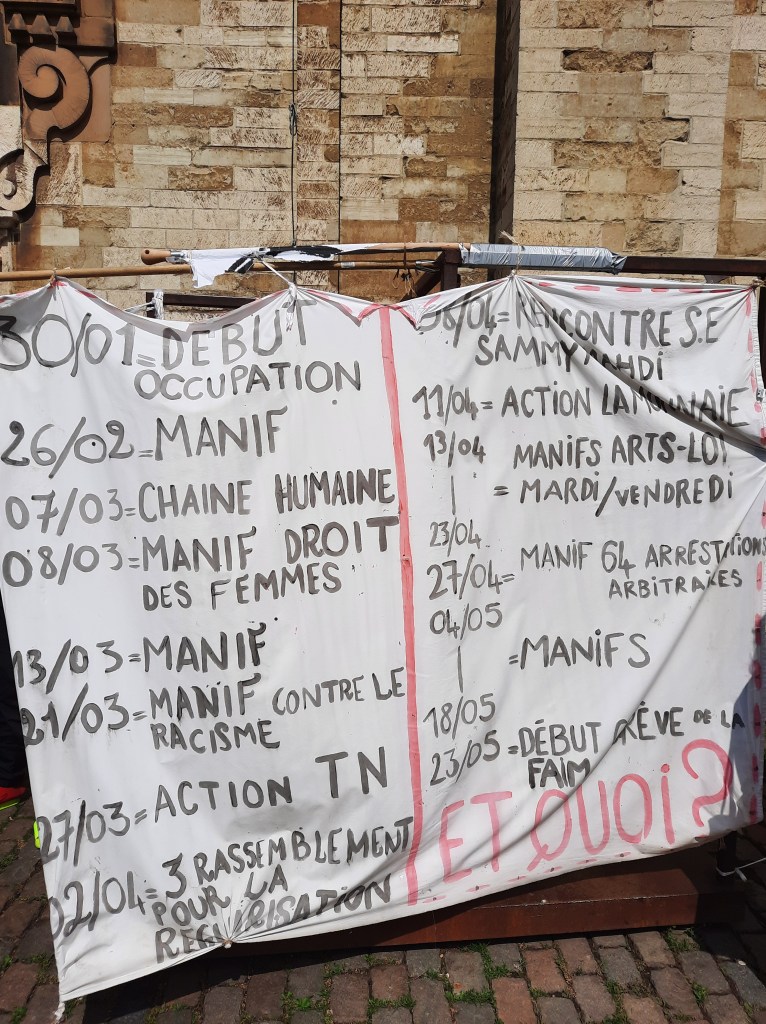 30/01 = DÉBUT
OCCUPATION
26/02 = MANIF
07/03 = CHAINE HUMAINE
08/03 = MANIF DROIT
DES FEMMES
13/03 = MANIF
21/03 = MANIF CONTRE LE
RACISME
27/03 = ACTION TN
02/04 = 3 RASSEMBLEMENT
POUR LA
/04 = RENCONTRE S.E
SAMMY MAHDI
11/04 = ACTION LA MONNAIE
13/04 MANIFS ARTS-LOI
| = MARDI/VENDREDI
23/04
27/04 = MANIF 64 ARRESTATIONS
ARBITRAIRES
04/05
| = MANIFS
18/05
23/05 = DÉBUT GRÈVE DE LA
FAIM
ET QUOI?